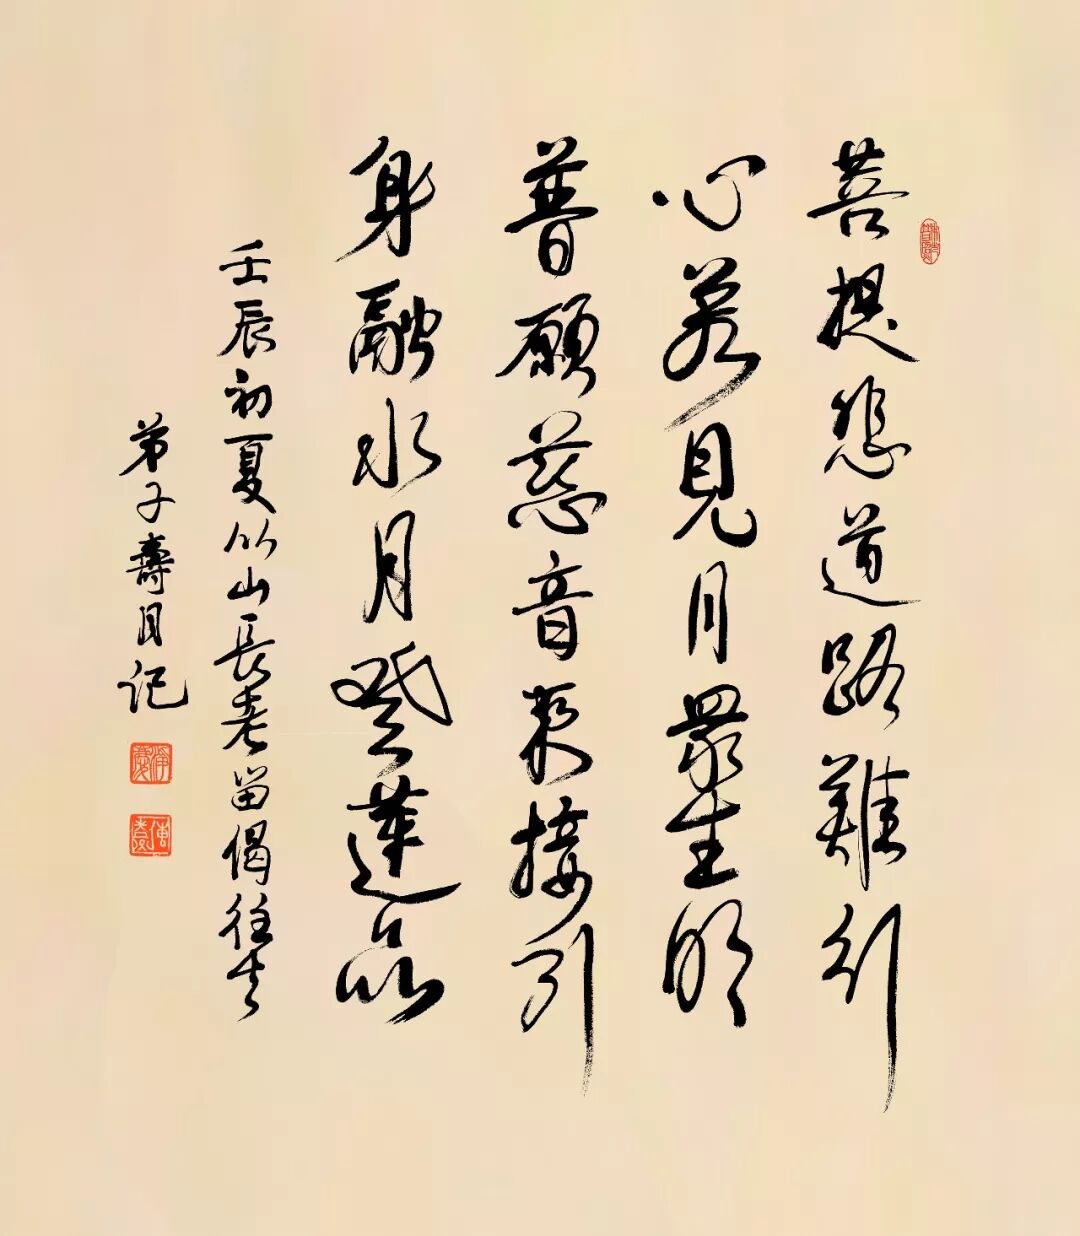 菩提悲道路難行
心若見月眾生明
普願慈音來接引
身融水月登蓮品
壬辰初夏竹山長老留偈往去
弟子壽月記